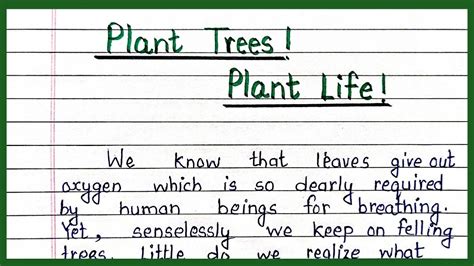 Plant Trees!
Plant Life!
We know that leaves give out
oxygen which is so dearly required
by human beings for breathing.
Yet, senselessly we keep on felling
trees. Little do we realize what